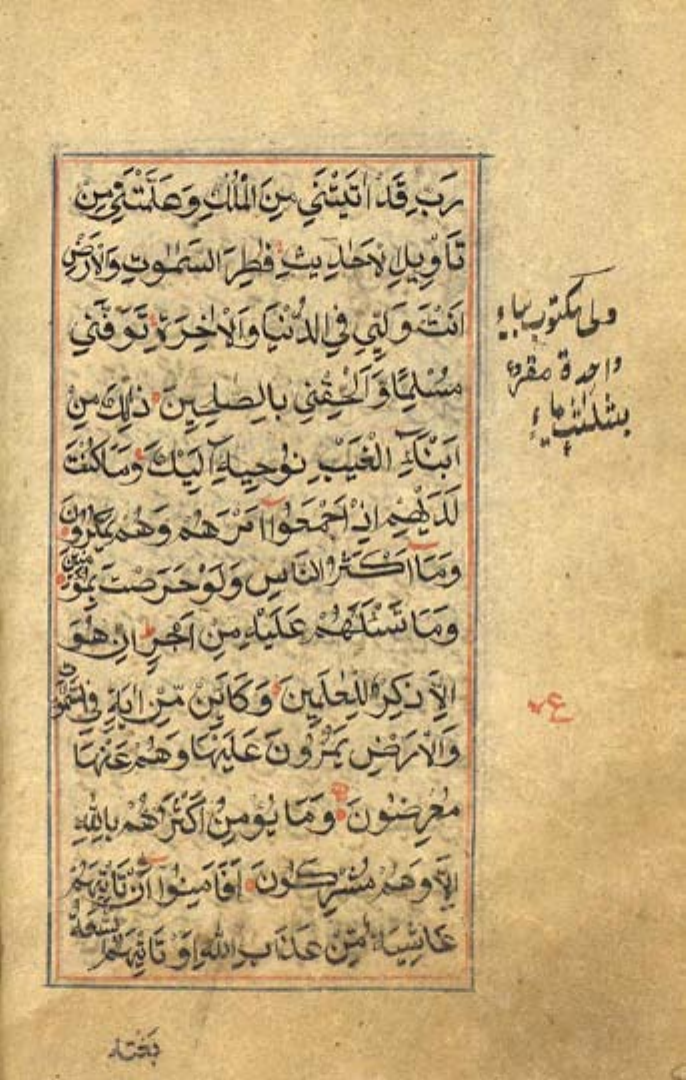 رَبِّ قَدْ اٰتَيْتَنِي مِنَ الْمُلْكِ وَعَلَّمْتَنِي مِنْ
تَأْوِيلِ الْاَحَادِيثِ فَاطِرَ السَّمٰوٰتِ وَالْاَرْضِ
اَنْتَ وَلِيّٖ فِي الدُّنْيَا وَالْاٰخِرَةِ تَوَفَّنِي
مُسْلِمًا وَّاَلْحِقْنِي بِالصّٰلِحِينَ ذٰلِكَ مِنْ
اَنْبَآءِ الْغَيْبِ نُوحِيهِ اِلَيْكَ وَمَا كُنْتَ
لَدَيْهِمْ اِذْ اَجْمَعُوٓا اَمْرَهُمْ وَهُمْ يَمْكُرُونَ
وَمَآ اَكْثَرُ النَّاسِ وَلَوْ حَرَصْتَ بِمُؤْمِنِينَ
وَمَا تَسْـَٔلُهُمْ عَلَيْهِ مِنْ اَجْرٍ اِنْ هُوَ
اِلَّا ذِكْرٌ لِّلْعٰلَمِينَ وَكَاَيِّنْ مِّنْ اٰيَةٍ فِي السَّمٰوٰتِ
وَالْاَرْضِ يَمُرُّونَ عَلَيْهَا وَهُمْ عَنْهَا
مُعْرِضُونَ وَمَا يُؤْمِنُ اَكْثَرُهُمْ بِاللّٰهِ
اِلَّا وَهُمْ مُشْرِكُونَ اَفَاَمِنُوٓا اَنْ تَأْتِيَهُمْ
غَاشِيَةٌ مِّنْ عَذَابِ اللّٰهِ اَوْ تَأْتِيَهُمُ السَّاعَةُ
بَغْتَةً
ولی مکتوب بیاء
واحدة مقروء
بثلث یاء
ع